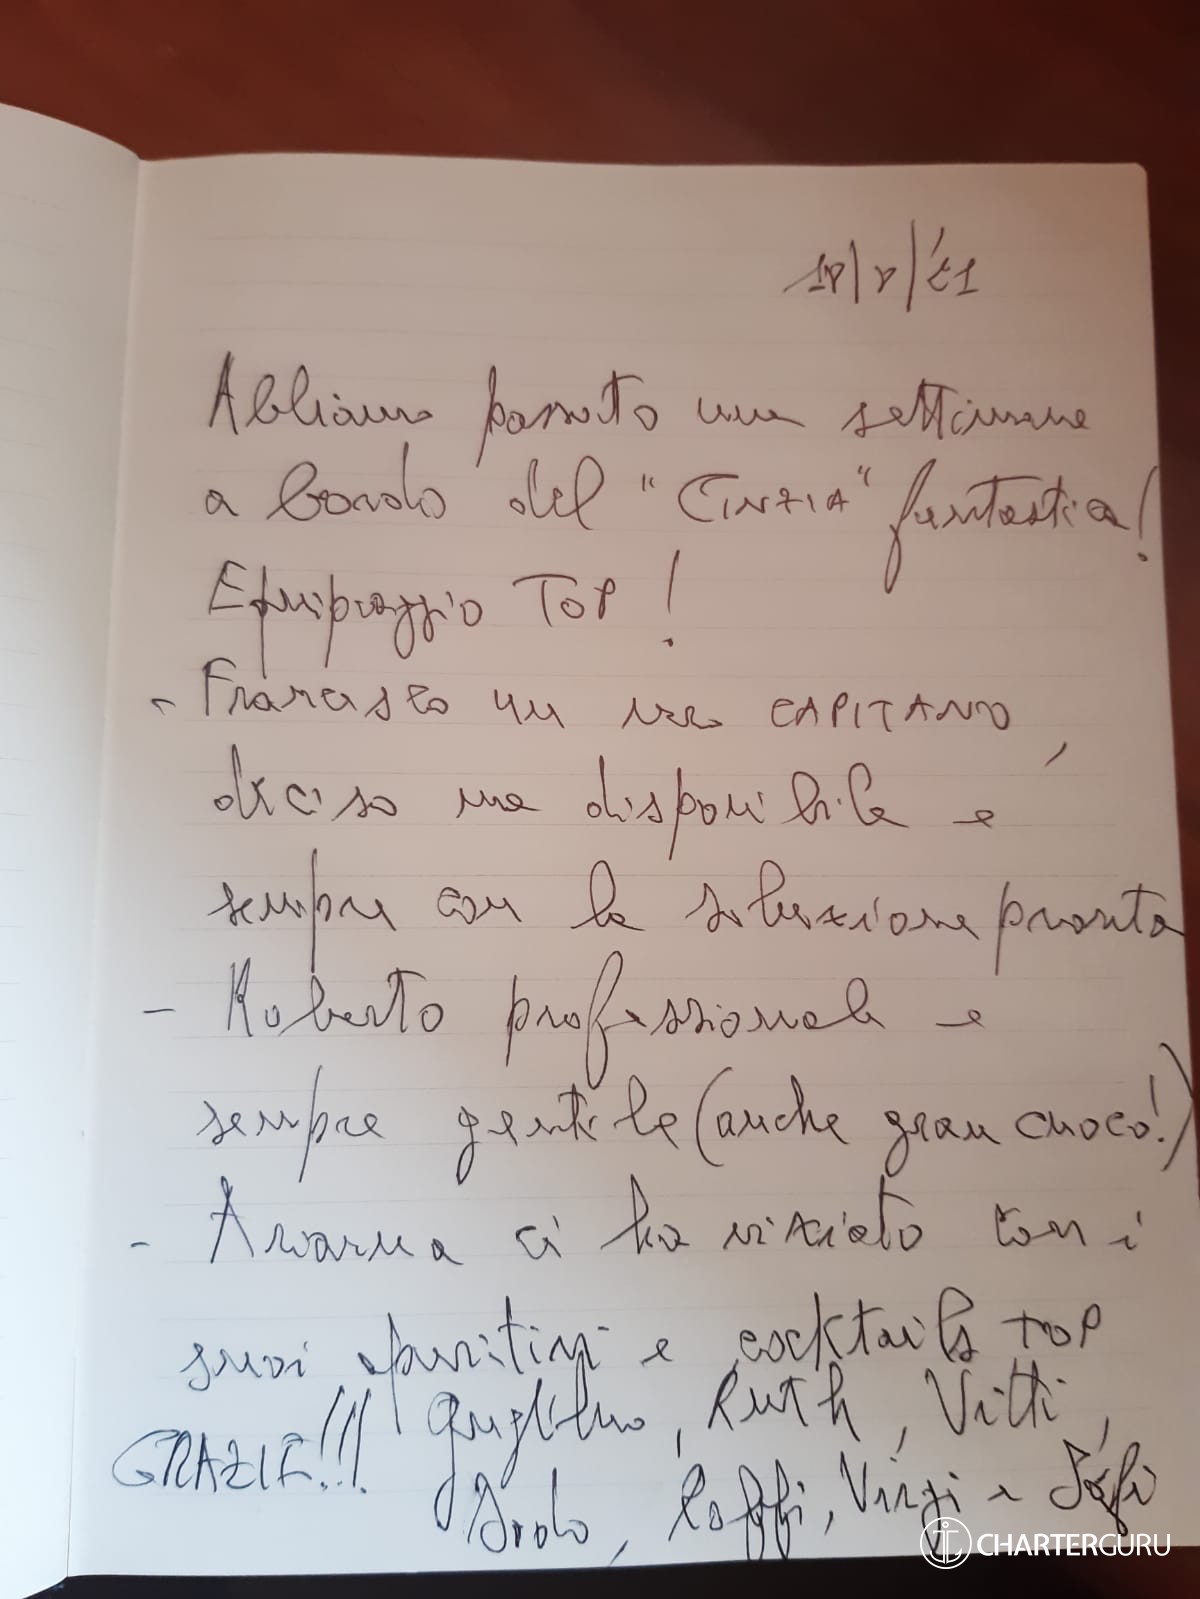 Abbiamo passato una settimana
a bordo del "CINZIA" fantastica!
Equipaggio TOP!
- Francesco un vero CAPITANO,
deciso ma disponibile e
sempre con la soluzione pronta
- Roberto professionale e
sempre gentile (anche gran cuoco!)
- Arianna ci ha viziato con i
suoi aperitivi e cocktails TOP
GRAZIE!!! Guglielmo, Ruth, Vitti,
, Virgi e
CHARTERGURU